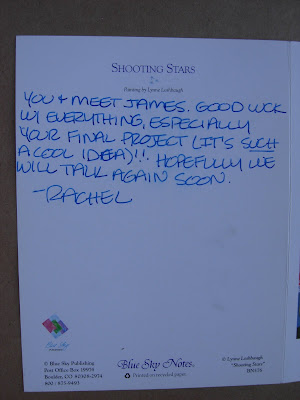 SHOOTING STARS
Painting by Lynne Loshbaugh
YOU & MEET JAMES. GOOD LUCK
W/ EVERYTHING, ESPECIALLY
YOUR FINAL PROJECT (IT'S SUCH
A COOL IDEA)!! HOPEFULLY WE
WILL TALK AGAIN SOON.
-RACHEL
Blue Sky
© Blue Sky Publishing
Post Office Box 19974
Boulder, CO 80308-2974
800 / 875-9493
Blue Sky Notes
Printed on recycled paper.
© Lynne Loshbaugh
"Shooting Stars"